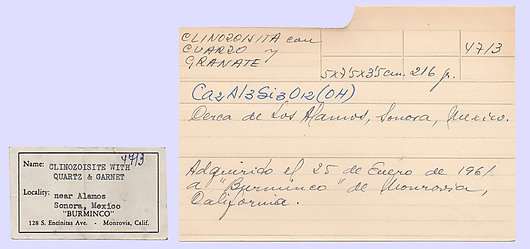 4713
Name: CLINOZOISITE WITH
QUARTZ & GARNET
Locality: near Alamos
Sonora, Mexico
"BURMINCO"
128 S. Encinitas Ave. - Monrovia, Calif.
CLINOZOISITA con
CUARZO y
GRANATE
4713
5x7'5x3'5cm. 216 gr.
Ca2Al3Si3O12(OH)
Cerca de Los Alamos, Sonora, Mexico.
Adquirido el 25 de Enero de
a "Burminco" de Monrovia,
California.